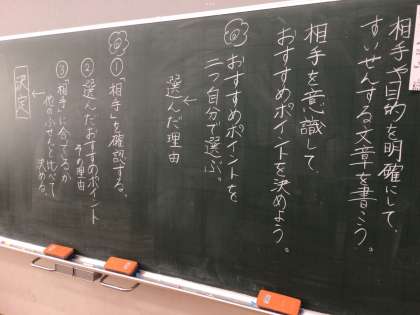 相手や目的を明確にして、
すいせんする文章を書こう。
相手を意識して、
おすすめポイントを決めよう。
おすすめポイントを
二つ自分で選ぶ。
選んだ理由
①「相手」を確認する。
②選んだおすすめポイント
その理由
③「相手」に合ってるか
他のふせんと比べて
決める。
決定